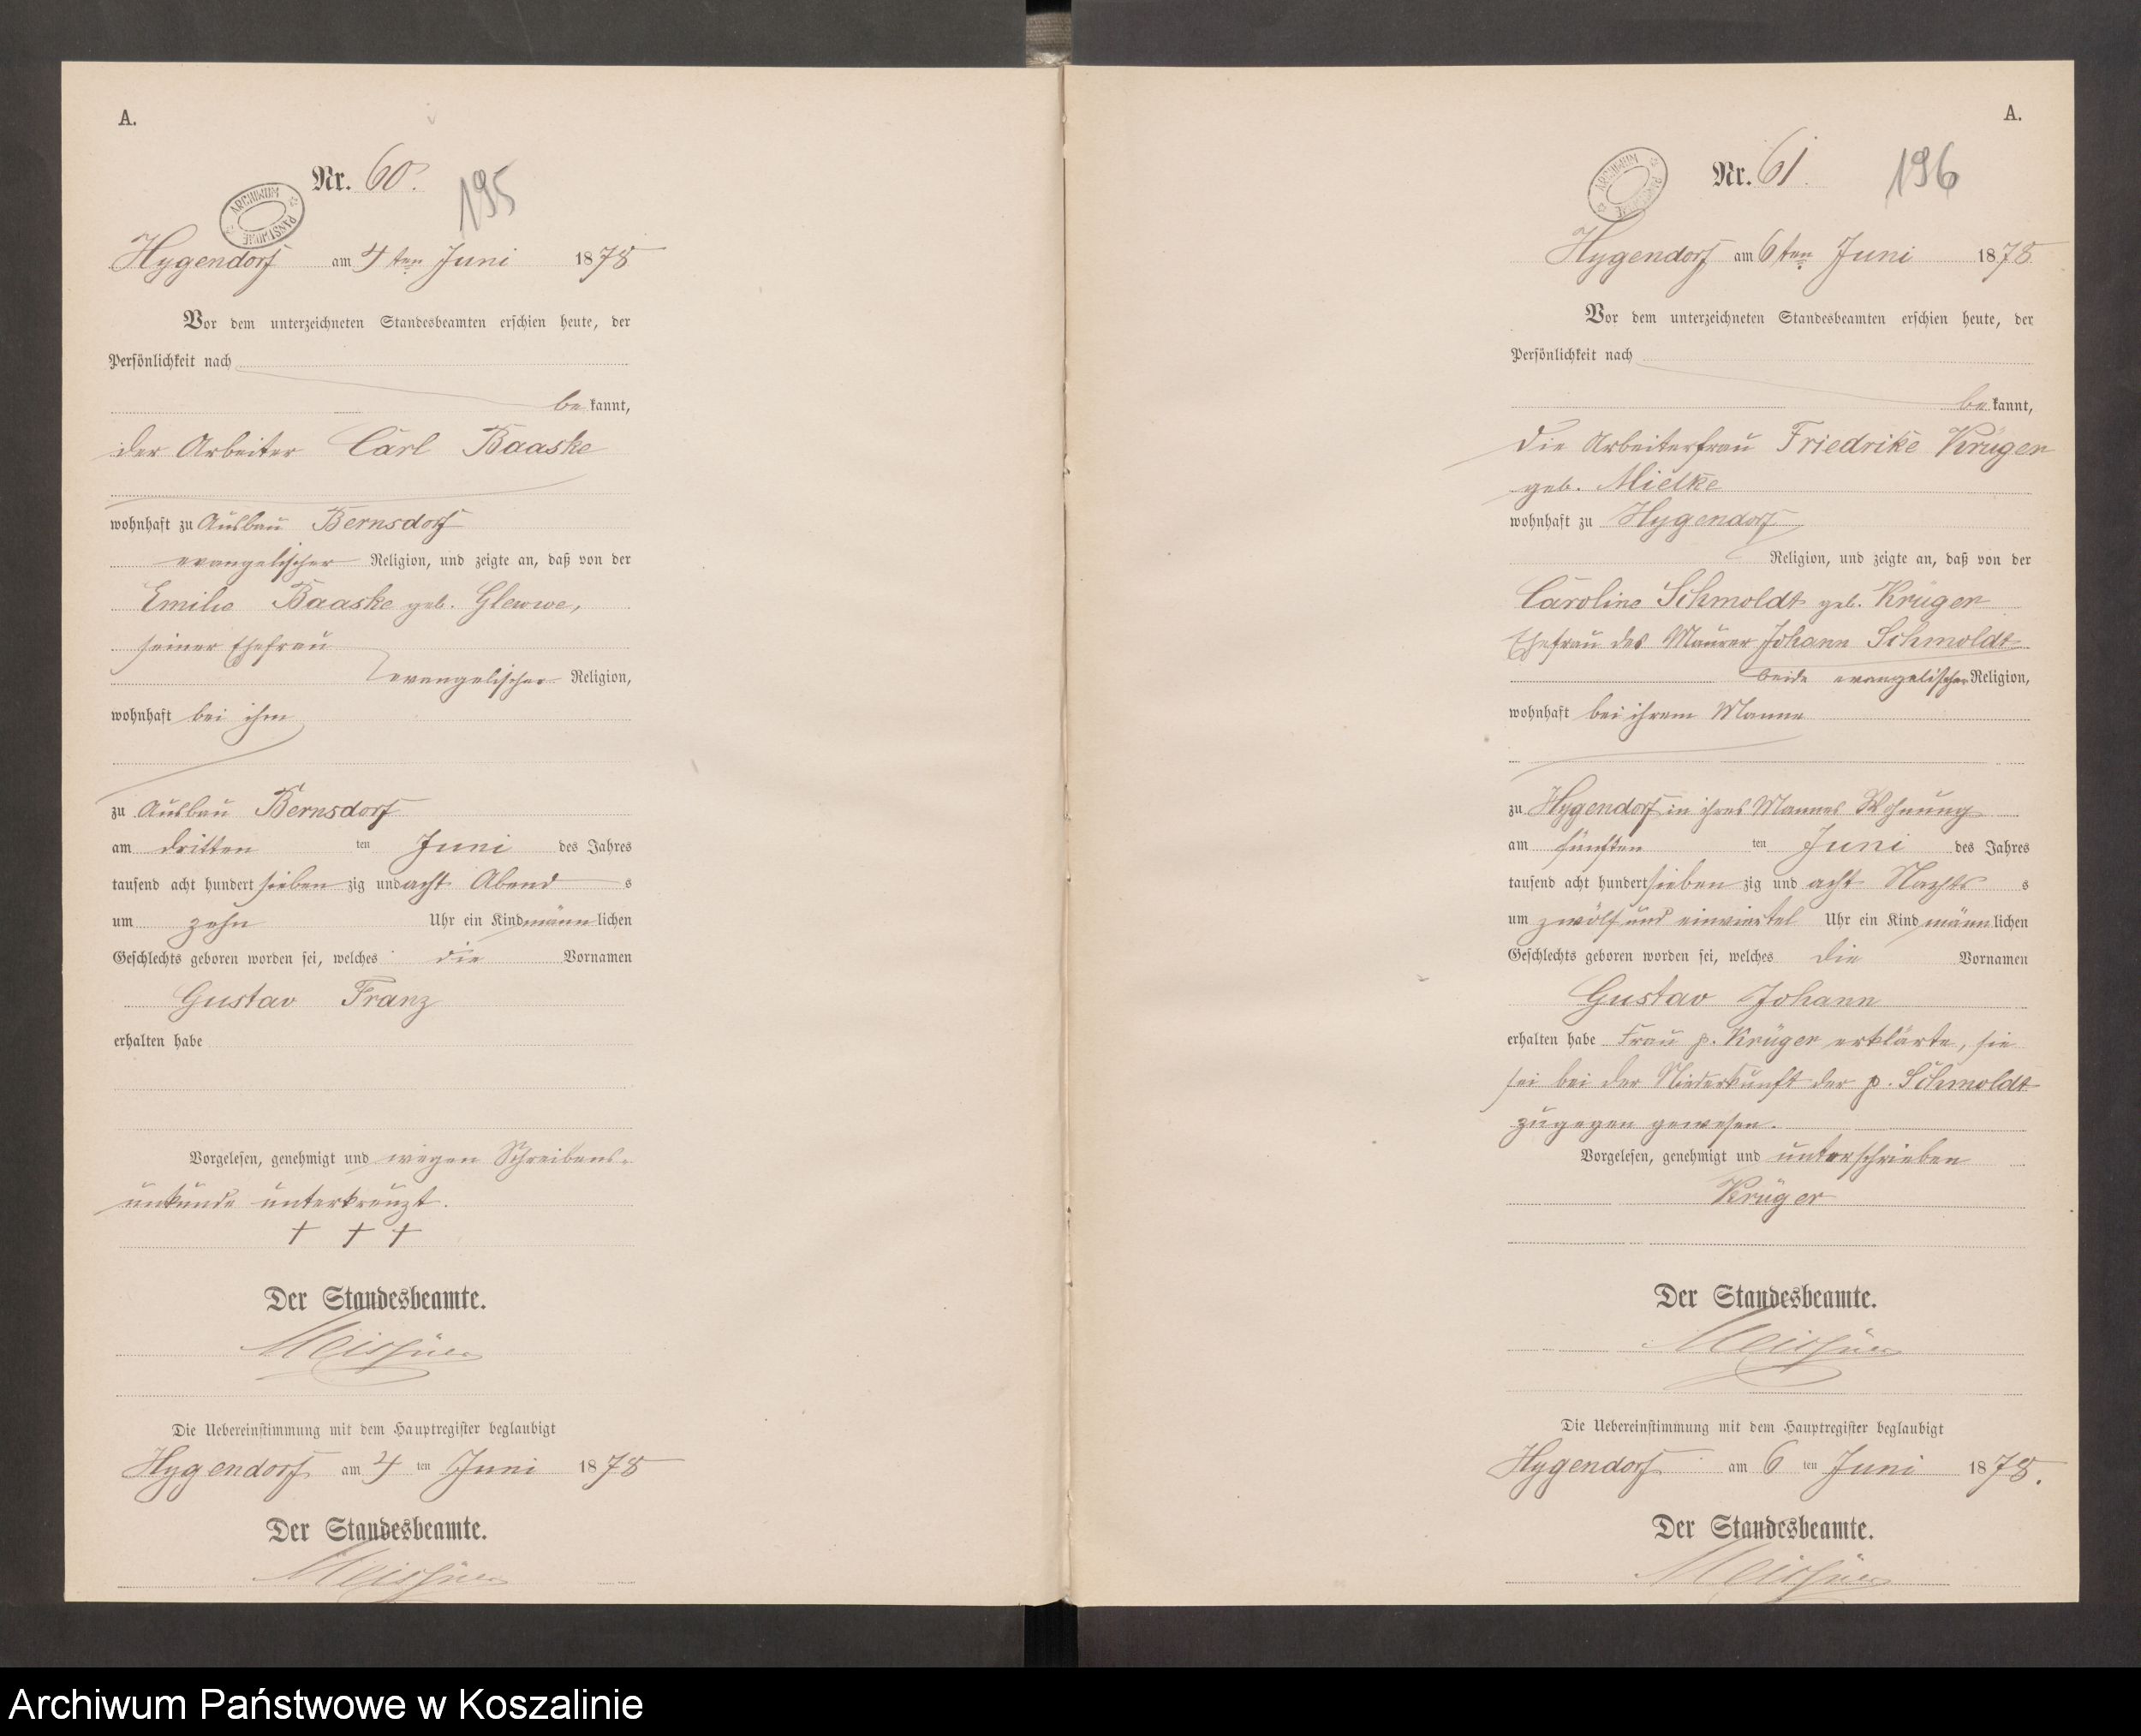 A.
Nr. 60.
195
ARCHIWUM PAŃSTWOWE
Hygendorf am 4ten Juni 1878
Vor dem unterzeichneten Standesbeamten erschien heute, der
Persönlichkeit nach
bekannt,
der Arbeiter Carl Baaske
wohnhaft zu Ausbau Bernsdorf
evangelischer Religion, und zeigte an, daß von der
Emilie Baaske geb. Glewwe,
seiner Ehefrau
evangelischer Religion,
wohnhaft bei ihm
zu Ausbau Bernsdorf
am dritten ten Juni des Jahres
tausend acht hundert siebenzig und acht Abends
um zehn Uhr ein Kind männlichen
Geschlechts geboren worden sei, welches die Vornamen
Gustav Franz
erhalten habe
Vorgelesen, genehmigt und wegen Schreibens-
unkunde unterkreuzt.
+ + +
Der Standesbeamte.
Die Uebereinstimmung mit dem Hauptregister beglaubigt
Hygendorf am 4 ten Juni 1878
Der Standesbeamte.
A.
Nr. 61.
196
ARCHIWUM PAŃSTWOWE
Hygendorf am 6ten Juni 1878
Vor dem unterzeichneten Standesbeamten erschien heute, der
Persönlichkeit nach
bekannt,
die Arbeiterfrau Friedrike Krüger
geb. Mielke
wohnhaft zu Hygendorf
Religion, und zeigte an, daß von der
Caroline Schmoldt geb. Krüger
Ehefrau des Maurer Johann Schmoldt
beide evangelischer Religion,
wohnhaft bei ihrem Manne
zu Hygendorf in ihres Mannes Wohnung
am fünften ten Juni des Jahres
tausend acht hundert siebenzig und acht Nachts s
um zwölf und einviertel Uhr ein Kind männlichen
Geschlechts geboren worden sei, welches die Vornamen
Gustav Johann
erhalten habe Frau p. Krüger erklärte, sie
sei bei der Niederkunft der p. Schmoldt
zugegen gewesen.
Vorgelesen, genehmigt und unterschrieben
Krüger
Der Standesbeamte.
Die Uebereinstimmung mit dem Hauptregister beglaubigt
Hygendorf am 6 ten Juni 1878.
Der Standesbeamte.
Archiwum Państwowe w Koszalinie